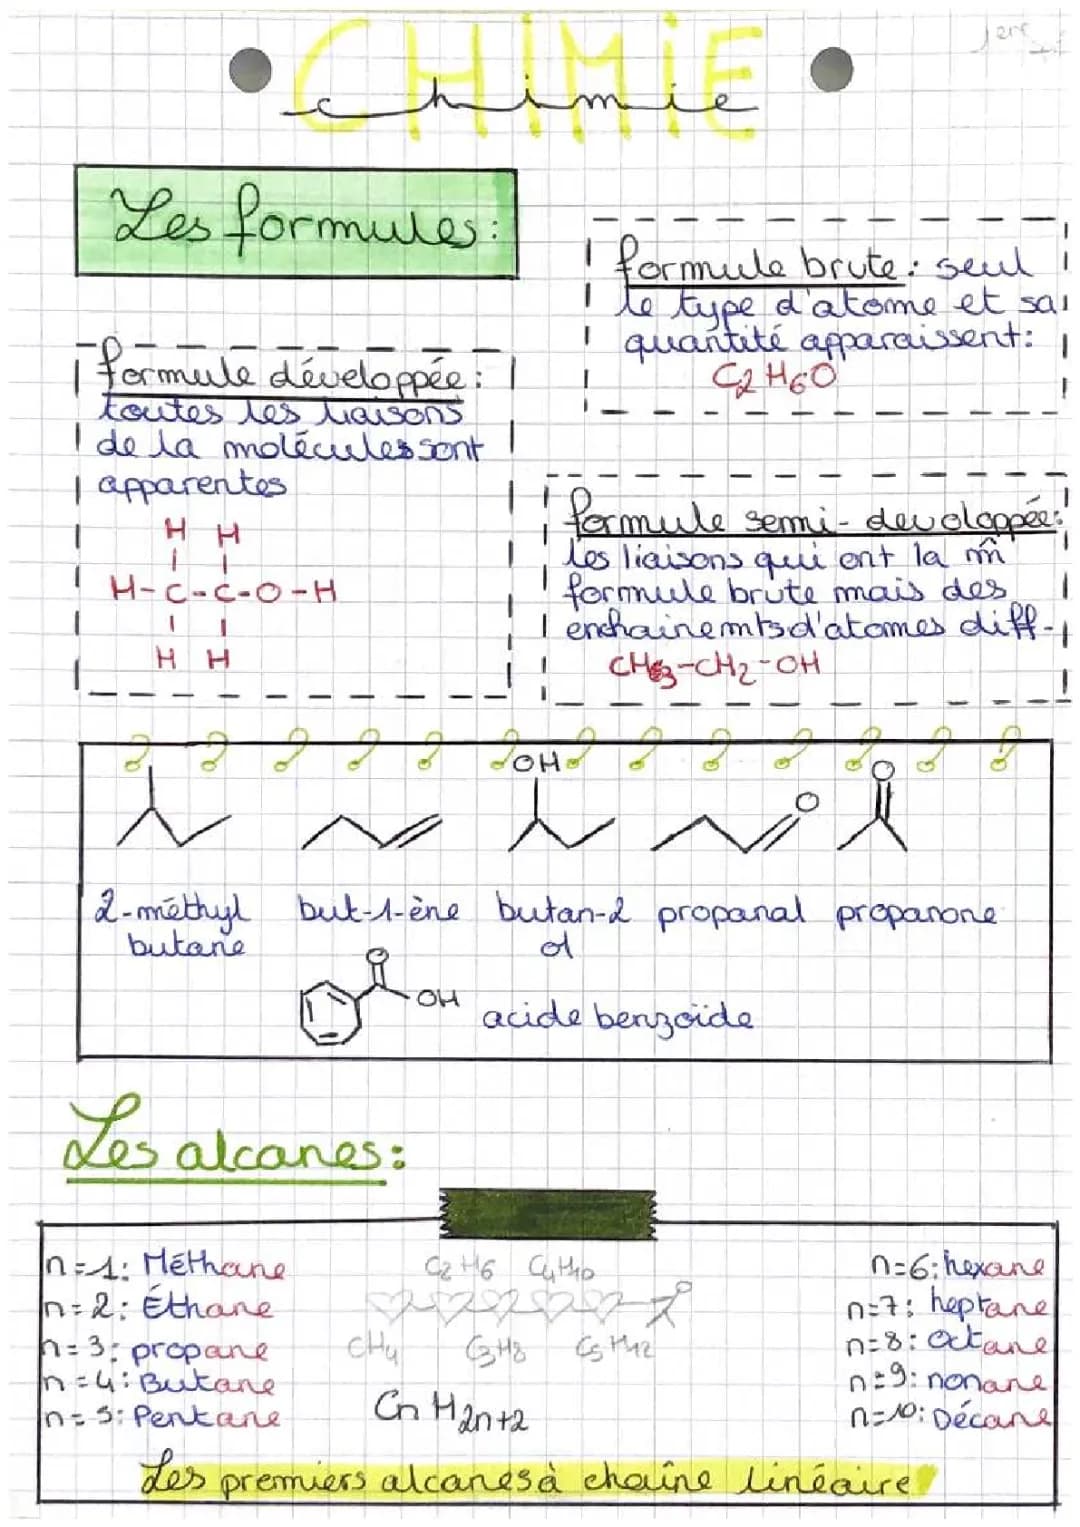 CHIMIE
chimie
1ere
Les formules:
formule brute: seul
le type d'atome et sa
quantité apparaissent:
C2H6O
formule développée:
toutes les liaisons
de la molécules sont
apparentes
H H
H-C-C-O-H
H H
formule semi-developpée:
les liaisons qui ont la m̂
formule brute mais des
enchainemts d'atomes diff-
CH3-CH2-OH
OH O O
2-méthyl but-1-ène butan-2 propanal propanone
butane ol
O
OH
acide benzoïde
Les alcanes:
n=1: Méthane
n=2: Éthane
n=3: propane
n=4: Butane
n=5: Pentane
C2H6 C4H10
CH4 C3H8 C5H12
CnH2n+2
n=6: hexane
n=7: heptane
n=8: octane
n=9: nonane
n=10: Décane
Les premiers alcanes à chaîne linéaire